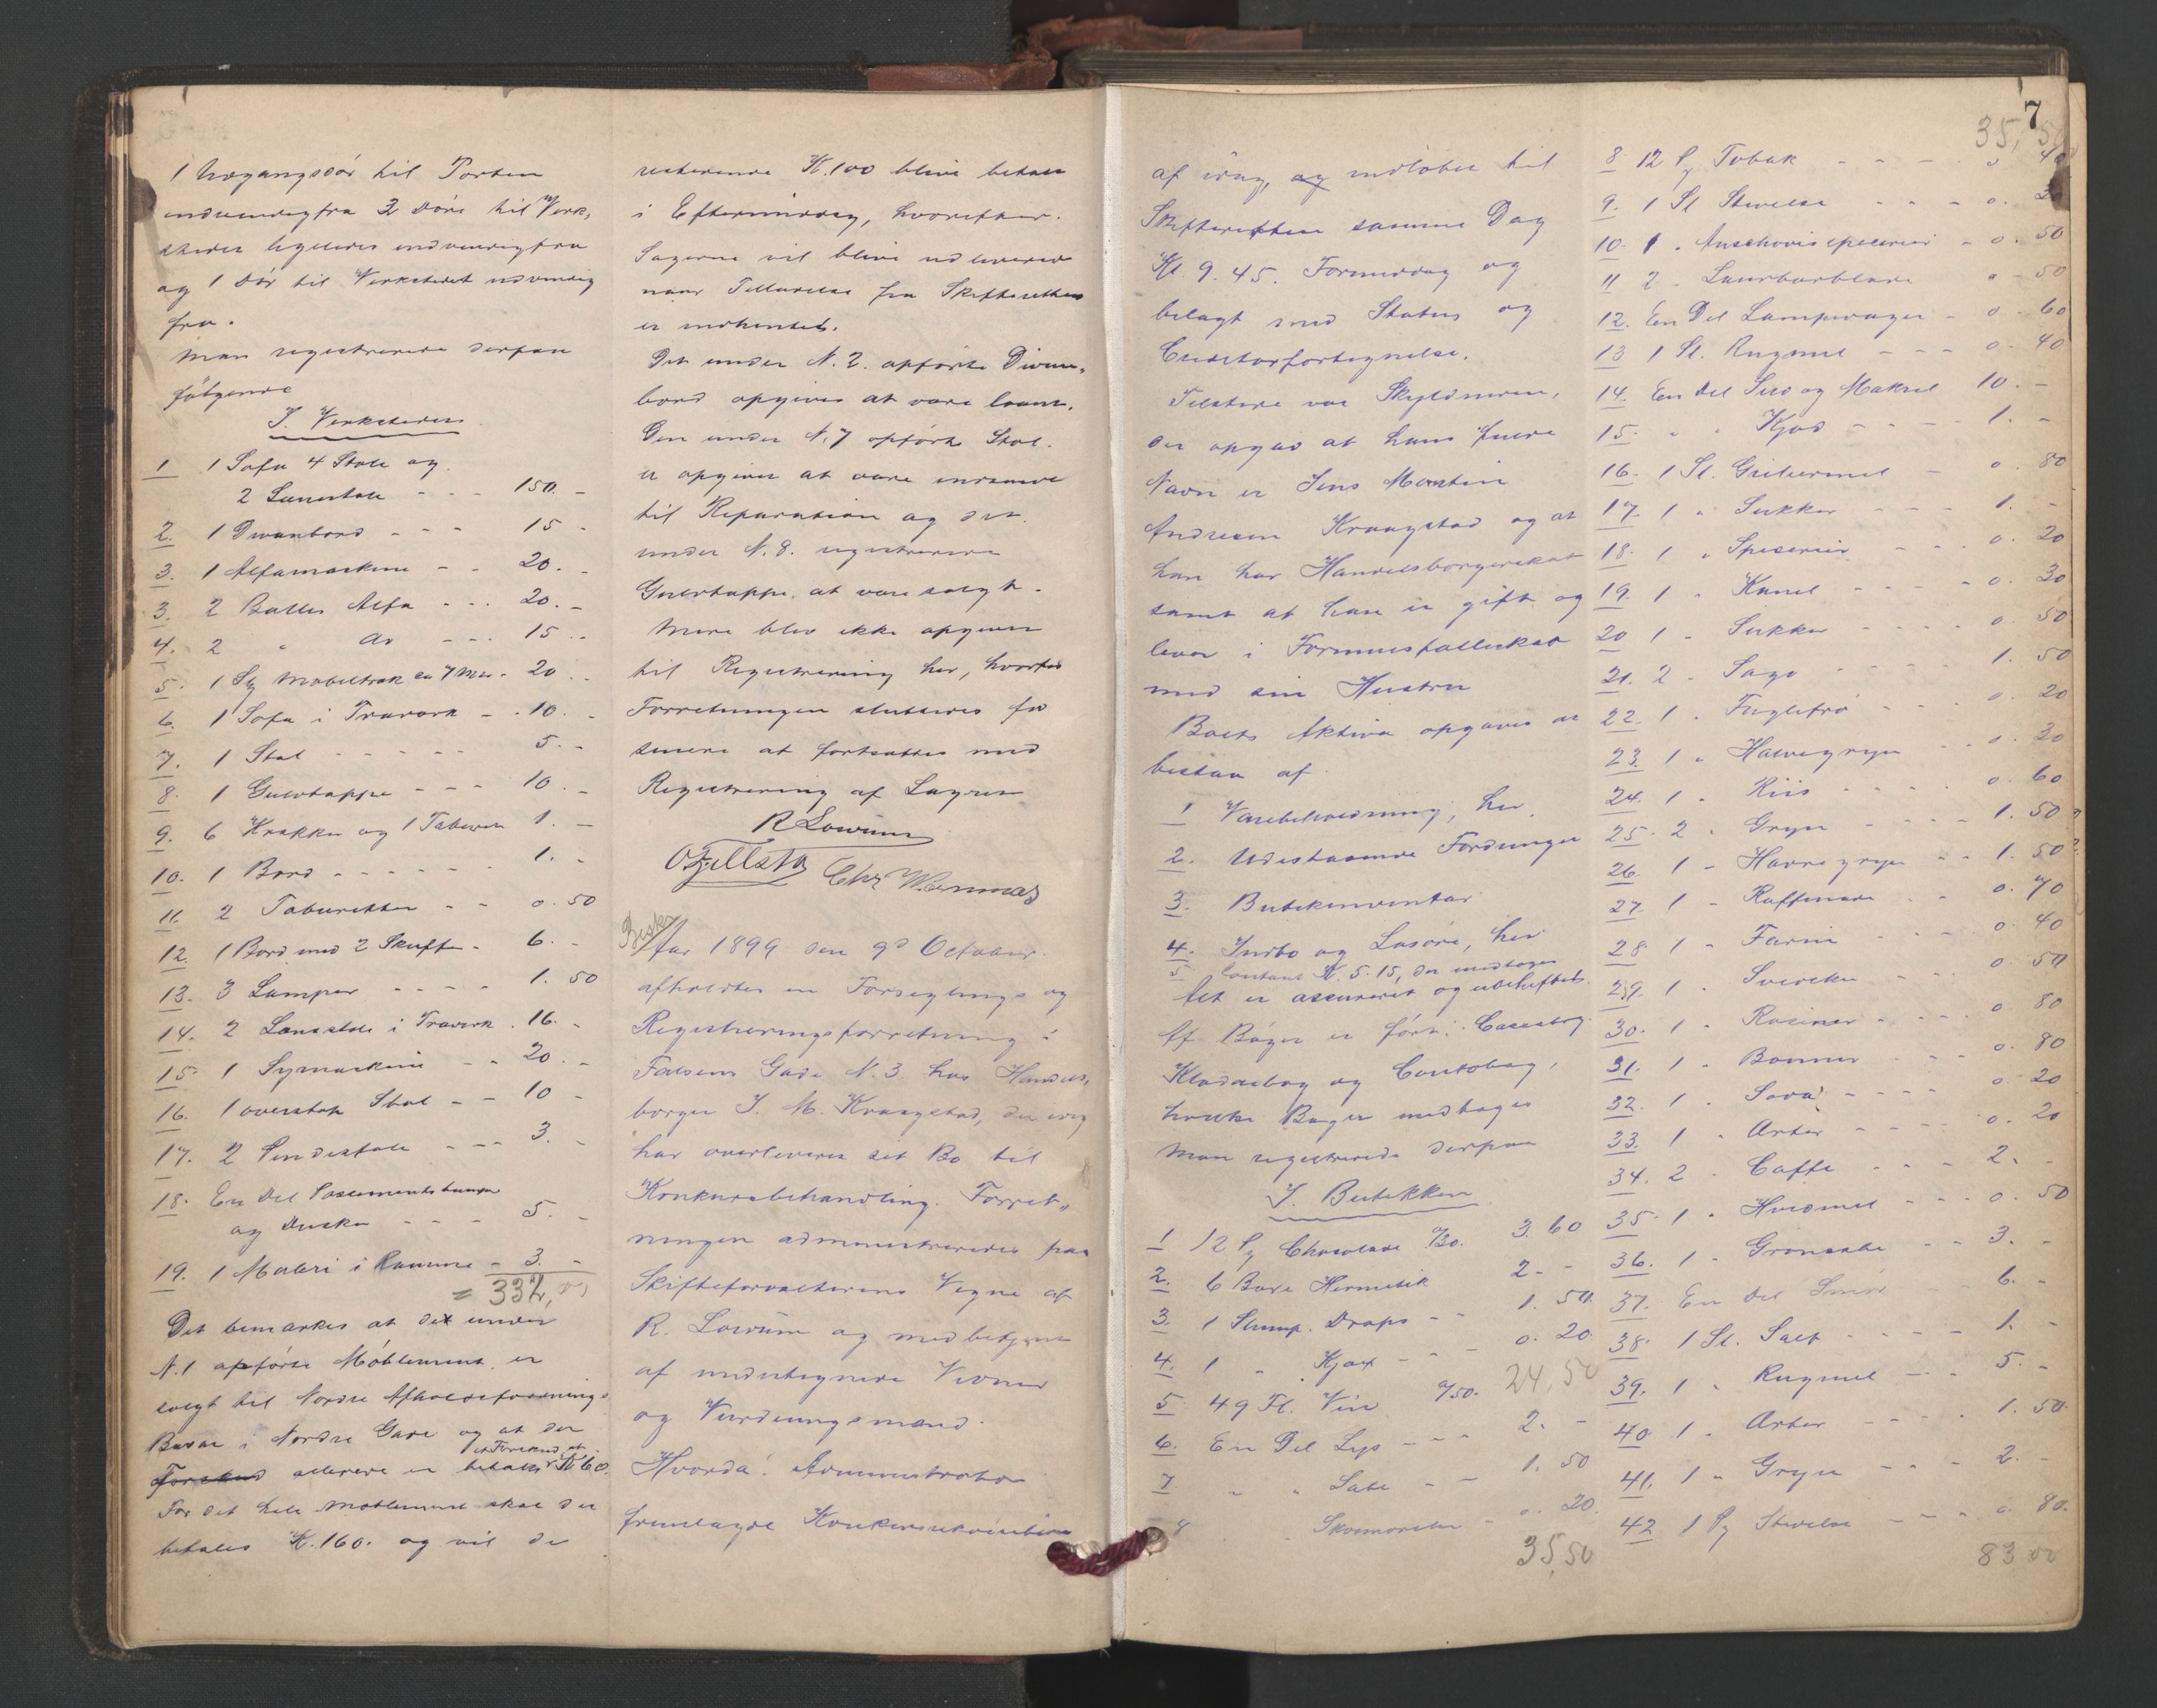 1 Indgangsdör til Porten
indvendigfra 2 döre til Værk-
stedet ligeledes indvendigfra
og 1 Dör til Værkstedet udvendig
fra.
Man registrerede derpaa
fölgende
I. Værkstedet
1 1 Sofa 4 Stole og
2 Lænestole - - - 150. -
2. 1 Divanbord - - - 15 -
3. 1 Alfamaskine - - 20. -
3. 2 Baller Alfa - - - 20. -
4. 2 " do - - - 15. -
5. 1 Sty Möbeltræk ca 7 Mtr. 20. -
6. 1 Sofa i Træværk - - 10. -
7. 1 Stol - - - - - 5. -
8. 1 Gulvtæppe - - - 10. -
9. 6 Krakker og 1 Taburet 1. -
10. 1 Bord - - - - - 1. -
11. 2 Taburetter - - 0. 50
12. 1 Bord med 2 Skuffer - 6. -
13. 3 Lamper - - - - 1. 50
14. 2 Lænestole i Træværk. 16. -
15. 1 Symaskine - - 20. -
16. 1 overstop Stol - - 10 -
17. 2 Pindestole - - - 3. -
18. En Del Possementsbaand
og Duske - - - 5. -
19. 1 Maleri i Ramme - 3. -
= 332,00
Det bemærkes at det under
N. 1 opförte Möblement er
solgt til Nordre Afholdsforenings
Basar i Nordre Gade og at der
Forskud allerede er betalt et Forskud af K 60.
For det hele Möblement skal der
betales K. 160. og vil de
resterende K. 100 blive betalt
i Eftermiddag, hvorefter
Sagerne vil blive udleveret
naar Tilladelse fra Skifteretten
er indhentet.
Det under N. 2. opförte Divan-
bord opgives at være laant.
Den under N. 7 opförte Stol
er opgivet at være indsendt
til Reparation og det
under N. 8. registrerede
Gulvtæppe at være solgt.
Mere blev ikke opgivet
til Registrering her, hvorfor
Forretningen sluttedes for
senere at fortsættes med
Registrering af Lageret
R Lowum
O Fjellstad Chr Wennas
Besk
Aar 1899 den 9d October
afholdtes en Forseglings og
Registreringsforretning i
Falsens Gade N. 3 hos Handels-
borger J. M. Kraagstad, der idag
har overleveret sit Bo til
Konkursbehandling. Forret-
ningen administreredes paa
Skifteforvalterens Vegne af
R. Lowum og med betjent
af undertegnede Vidner
og Vurderingsmænd.
Hvorda: Administrator
fremlagde Konkursrekvisition
7
af idag, og indlöbet til
Skifteretten samme Dag
Kl. 9. 45. Formiddag og
belagt med Status og
Creditorfortegnelse.
Tilstede var Skyldneren,
der opgav at hans fulde
Navn er Jens Martin
Andresen Kraagstad og at
han har Handelsborgerskab
samt at han er gift og
lever i Formuesfællesskab
med sin Hustru
Boets Aktiva opgaves at
bestaa af
1 Varebeholdning, her
2. Udestaaende Fordringer
3. Butikinventar
4. Indbo og Lösöre, her
5 Contant K. 5. 15, der medtages
Alt er assureret og ubeheftet.
Af Böger er fört: Cassabog
Kladdebog og Contobog,
hvilke Böger medtages
Man registrerede derpaa
I. Butikken
1 12 Py Chocolade /30. 3. 60
2. 6 Daase Hermetik 2 - -
3. 1 Slump. Drops - - 1. 50
4. 1 " Kjæx - - - 0. 20
5 49 Fl. Vin a/50. 24,50
6. En Del Lys - - - 2. -
7. " " Sæbe - - 1. 50
8 " Skosmörelse - 0. 20.
35,50
35,50
8. 12 Py Tobak - - - 0 40
9. 1 Sl Stivelse - - - 0. 30
10. 1 " Anschovis specerier - 0. 50
11 2 " Laurbærblade 0 - 50
12. En Del Lampevæger - 0 - 60
13 1 Sl. Rugmel - - - 0. 40
14. En Del Sild og Makrel 10. -
15. " " Kjöd - - - 1. -
16. 1 Sl. Grisermel - 0. 80
17. 1 " Sukker - - - 1. -
18. 1 " Specerier - - 0. 20
19. 1 " Kanel - - - - 0. 30
20 1 " Sukker - - - - 0. 50
21. 2 " Sago - - - 1. 50
22. 1 " Fuglefrö - - - 0. 20
23. 1 " Havregryn - - 0. 30
24. 1 " Riis - - - - 0. 60
25. 2 " Gryn - - - - 1. 50
26. 1 " Havregryn - - 1. 50
27. 1 " Raffinade - - 0. 70
28. 1 " Farin - - - 0. 40
29. 1 " Svedsker - - 0. 50
30. 1 " Rosiner - - - 0 80
31. 1 " Bönner - - - 0. 80
32. 1 " Soda - - - - 0. 20
33. 1 " Ærter - - - - 0. 20
34. 2 " Caffe - - - 2. -
35. 1 " Hvedmel - - - 0. 50
36. 1 " Grönsæbe - - 3. -
37. En Del Smör - 6. -
38. 1 Sl. Salt - - - - 1. -
39. 1 " Rugmel - - - 5. -
40. 1 " Ærter - - - - 1. 50
41. 1 " Gryn - - - 2. -
42 1 Py Stivelse - - - 0. 80.
83 00